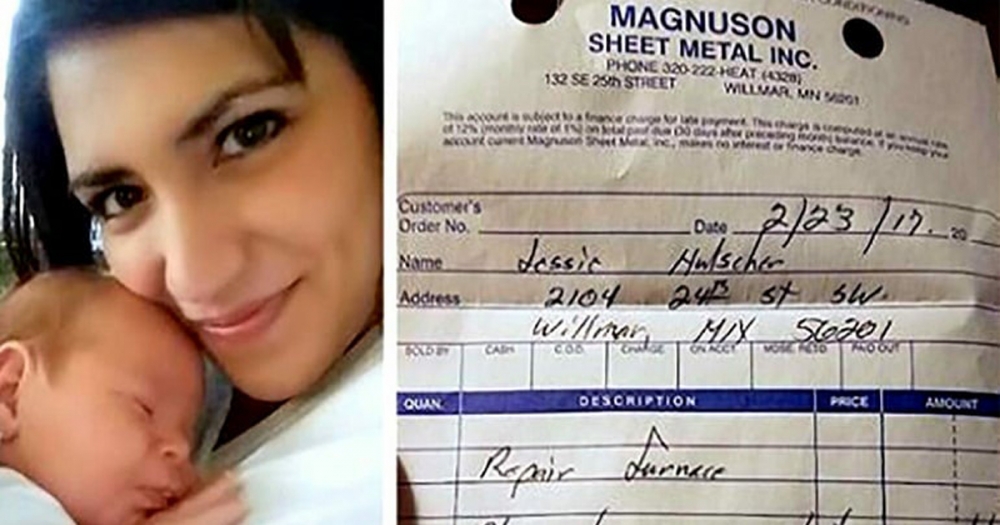 CONDITIONING
MAGNUSON
SHEET METAL INC.
PHONE 320-222-HEAT (4328)
132 SE 25th STREET WILLMAR, MN 56201
This account is subject to a finance charge for late payment. This charge is computed at an annual rate
of 12% (monthly rate of 1%) on total past due (30 days after preceding month) balance. If you keep your
account current Magnuson Sheet Metal, Inc., makes no interest or finance charge.
Customer's
Order No. Date 2/23/17. 20
Name Jessie Hulscher
Address 2104 24th St SW.
Willmar, MN 56201
SOLD BY CASH C.O.D. CHARGE ON ACCT. MDSE. RETD. PAID OUT
QUAN. DESCRIPTION PRICE AMOUNT
Repair furnace